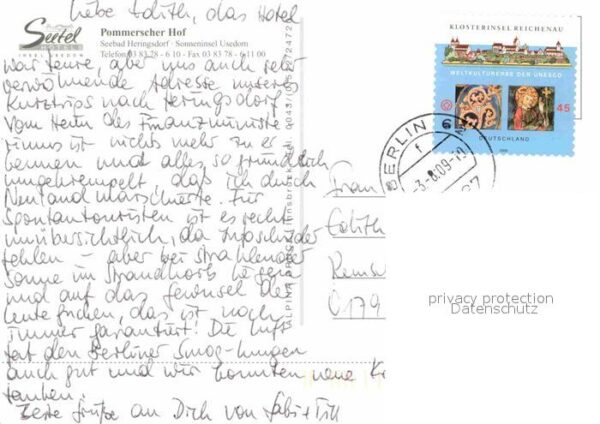 Liebe Edith, das Hotel
Seetel
HOTELS
INSEL USEDOM
Pommerscher Hof
Seebad Heringsdorf · Sonneninsel Usedom
Telefon 03 83 78 - 6 10 - Fax 03 83 78 - 6 11 00
war teure, aber uns auch sehr
verwöhnende Adresse unseres
Kurztrips nach Heringsdorf.
Vom Heim des Finanzministe
riums ist nichts mehr zu er
kennen und alles so gründlich
umgekrempelt, daß ich durch
Neuland marschierte. Für
Spontantouristen ist es recht
unübersichtlich, da Infoschilder
fehlen – aber bei strahlender
Sonne im Strandkorb liegen
und auf das Gewusel der
Leute gucken, das ist noch
immer garantiert! Die Luft
tat den Berliner Smog-Lungen
auch gut und wir konnten neue Kr
tanken.
Beste Grüße an Dich von Gabi + Till
KLOSTERINSEL REICHENAU
WELTKULTURERBE DER UNESCO
45
DEUTSCHLAND
BERLIN
Frau
Edith
0179
privacy protection
Datenschutz